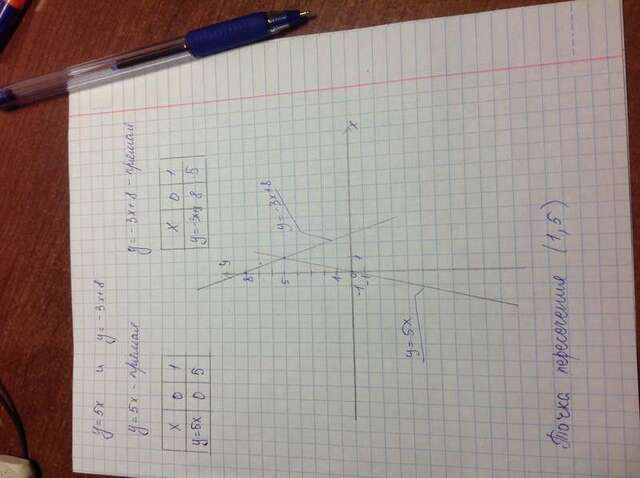 y=5x и y=-3x+8
y=5x - прямая
x 0 1
y=5x 0 5
y=-3x+8 - прямая
x 0 1
y=-3x+8 8 5
y
8
5
1
-1 0 1
-1
x
y=-3x+8
y=5x
Точка пересечения (1,5)